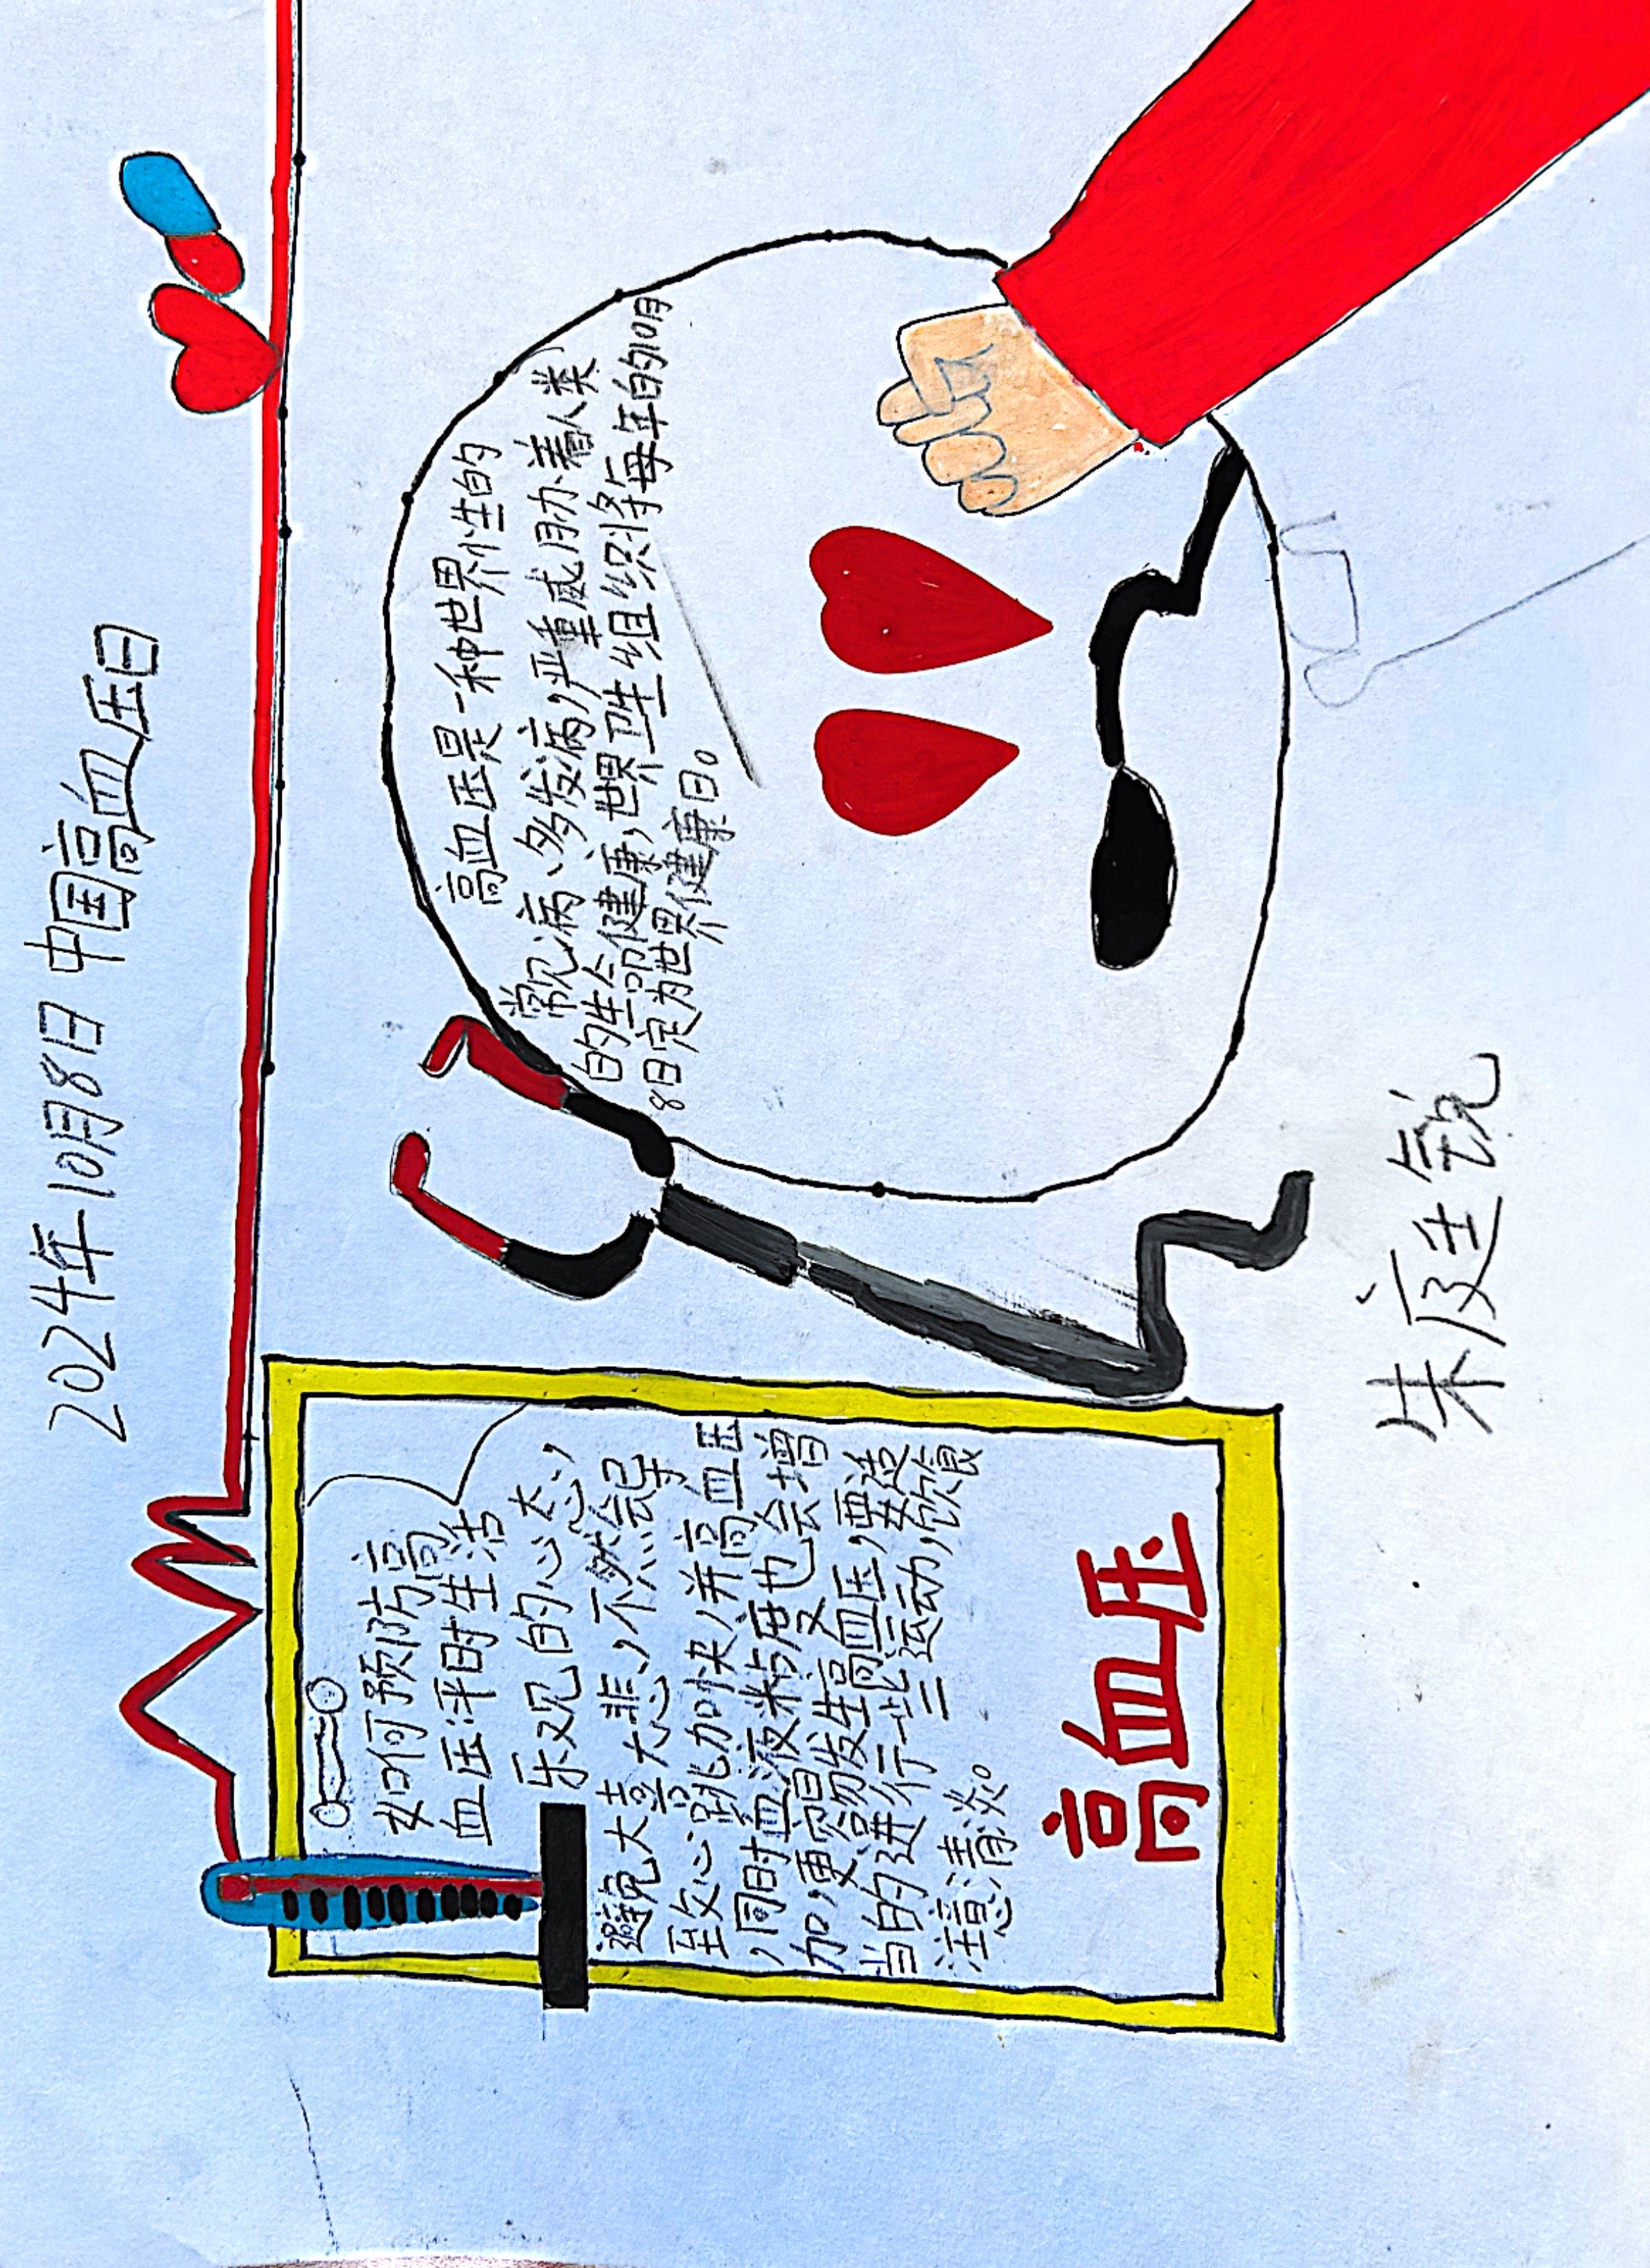 2024年10月8日 中国高血压日
如何预防高
血压平时生活
乐观的心态，
避免大喜大悲，不然会导
致心跳加快，并高血压
，同时血液粘度也会增
加，更容易发生高血压，要适
当的进行一些运动，饮食
注意清炎。
高血压
高血压是一种世界性的
常见病、多发病，严重威胁着人类
的生命健康，世界卫生组织将每年的10月
8日定为世界健康日。